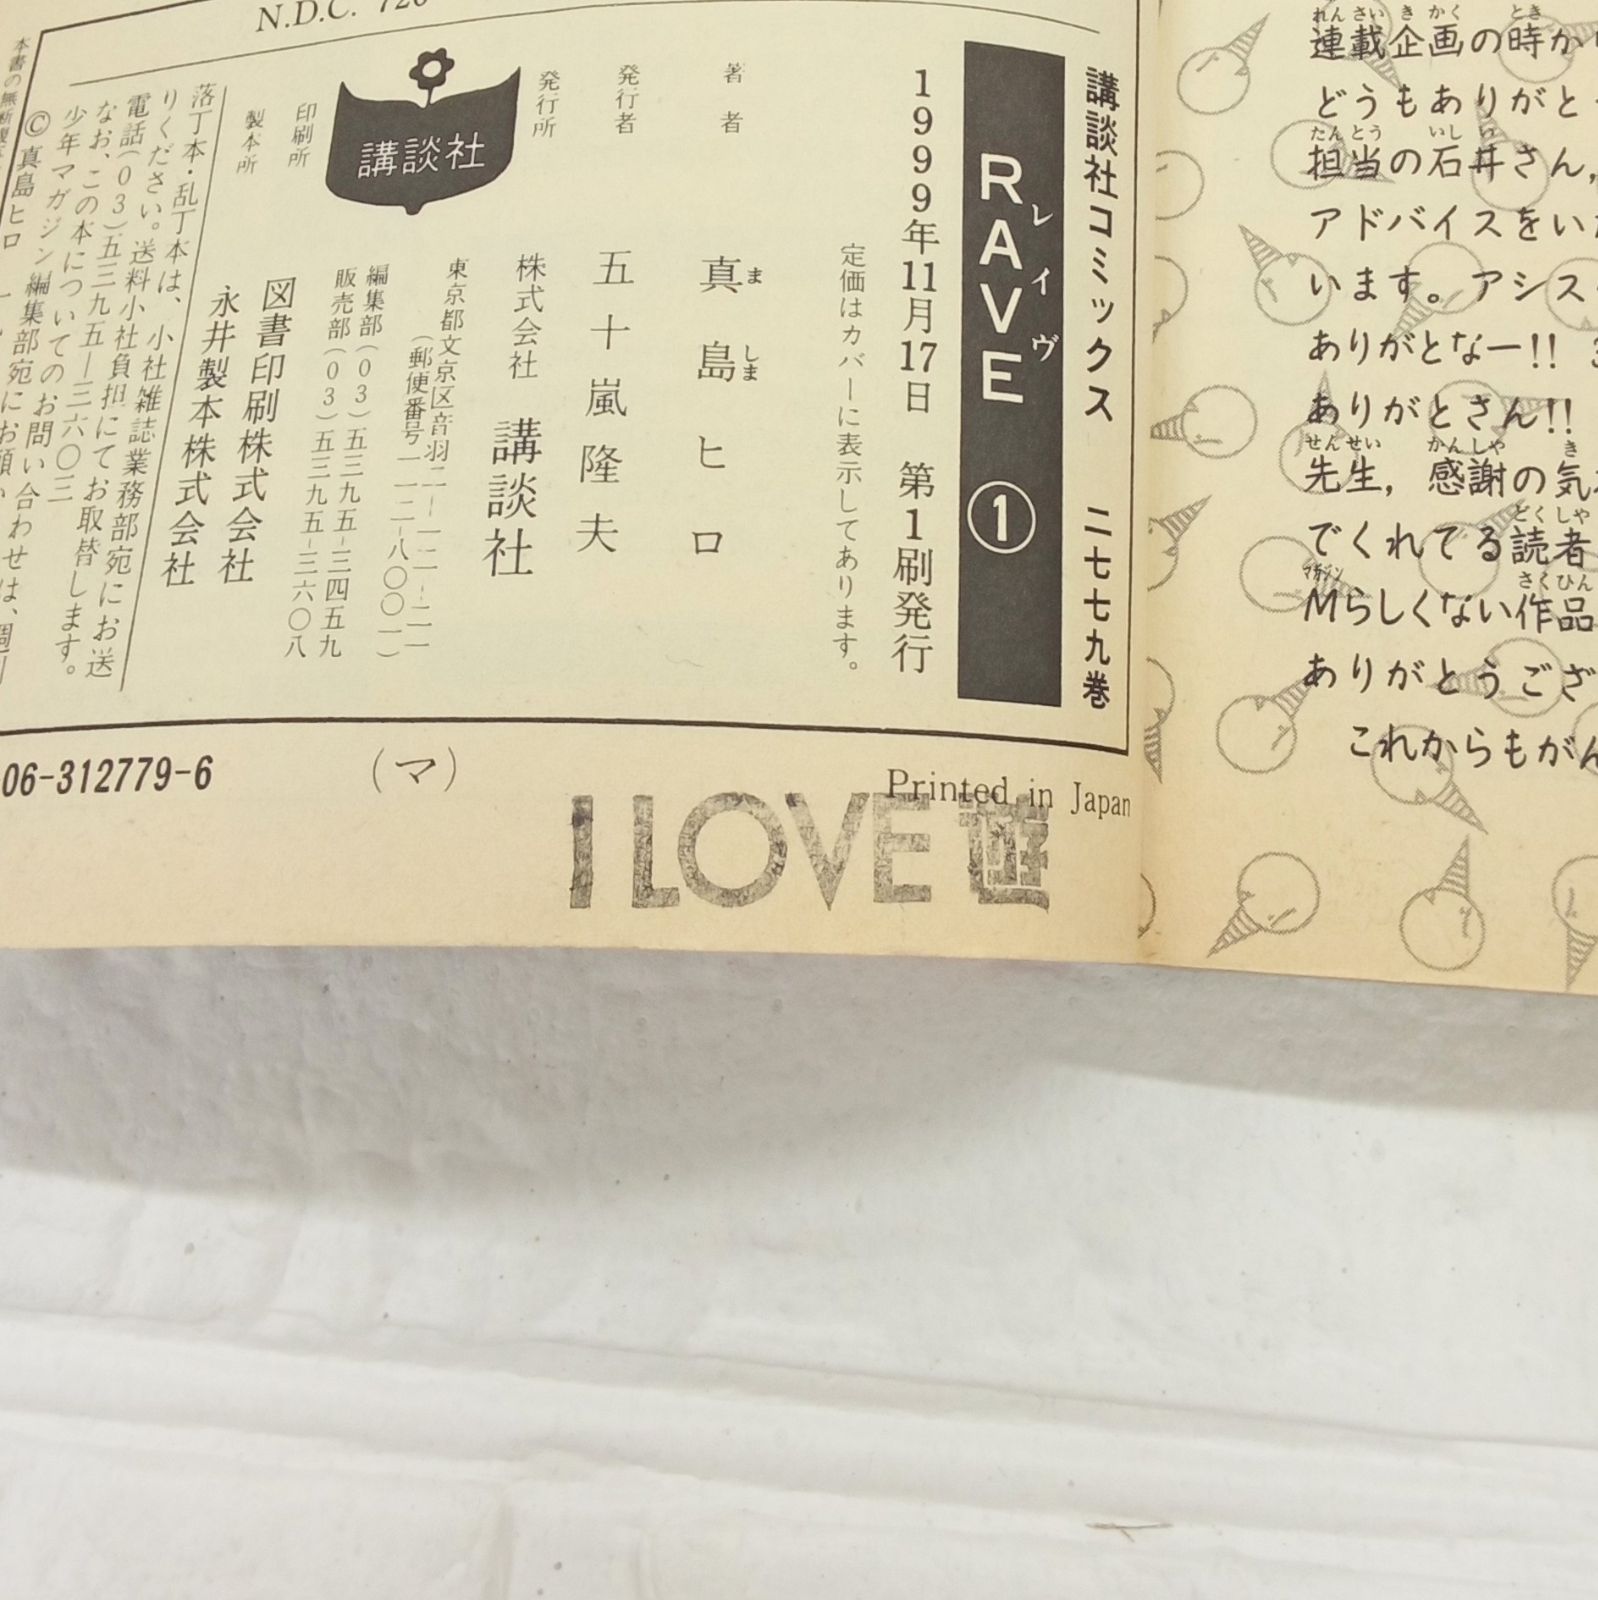 N.D.C. 726
講談社コミックス 二七七九巻
RAVE ①
レイヴ
1999年11月17日 第1刷発行
定価はカバーに表示してあります。
著者 真島ヒロ
ま しま
発行者 五十嵐隆夫
発行所 株式会社 講談社
東京都文京区音羽二−一二−二一
(郵便番号一一二−八〇〇一)
編集部(03)五三九五−三四五九
販売部(03)五三九五−三六〇八
講談社
印刷所 図書印刷株式会社
製本所 永井製本株式会社
落丁本・乱丁本は、小社雑誌業務部宛にお送
りください。送料小社負担にてお取替します。
電話(03)五三九五−三六〇三
なお、この本についてのお問い合わせは、週刊
少年マガジン編集部宛にお願い
©真島ヒロ
本書の無断複
06-312779-6
(マ)
Printed in Japan
I LOVE 遊
れんさいきかく とき
連載企画の時か
どうもありがと
たんとう いしい
担当の石井さん,
アドバイスをい
います。アシス
ありがとなー!!
ありがとさん!!
せんせい かんしゃ き
先生, 感謝の気
どくしゃ
でくれてる読者
マガジン さくひん
Mらしくない作品
ありがとうござ
これからもがん